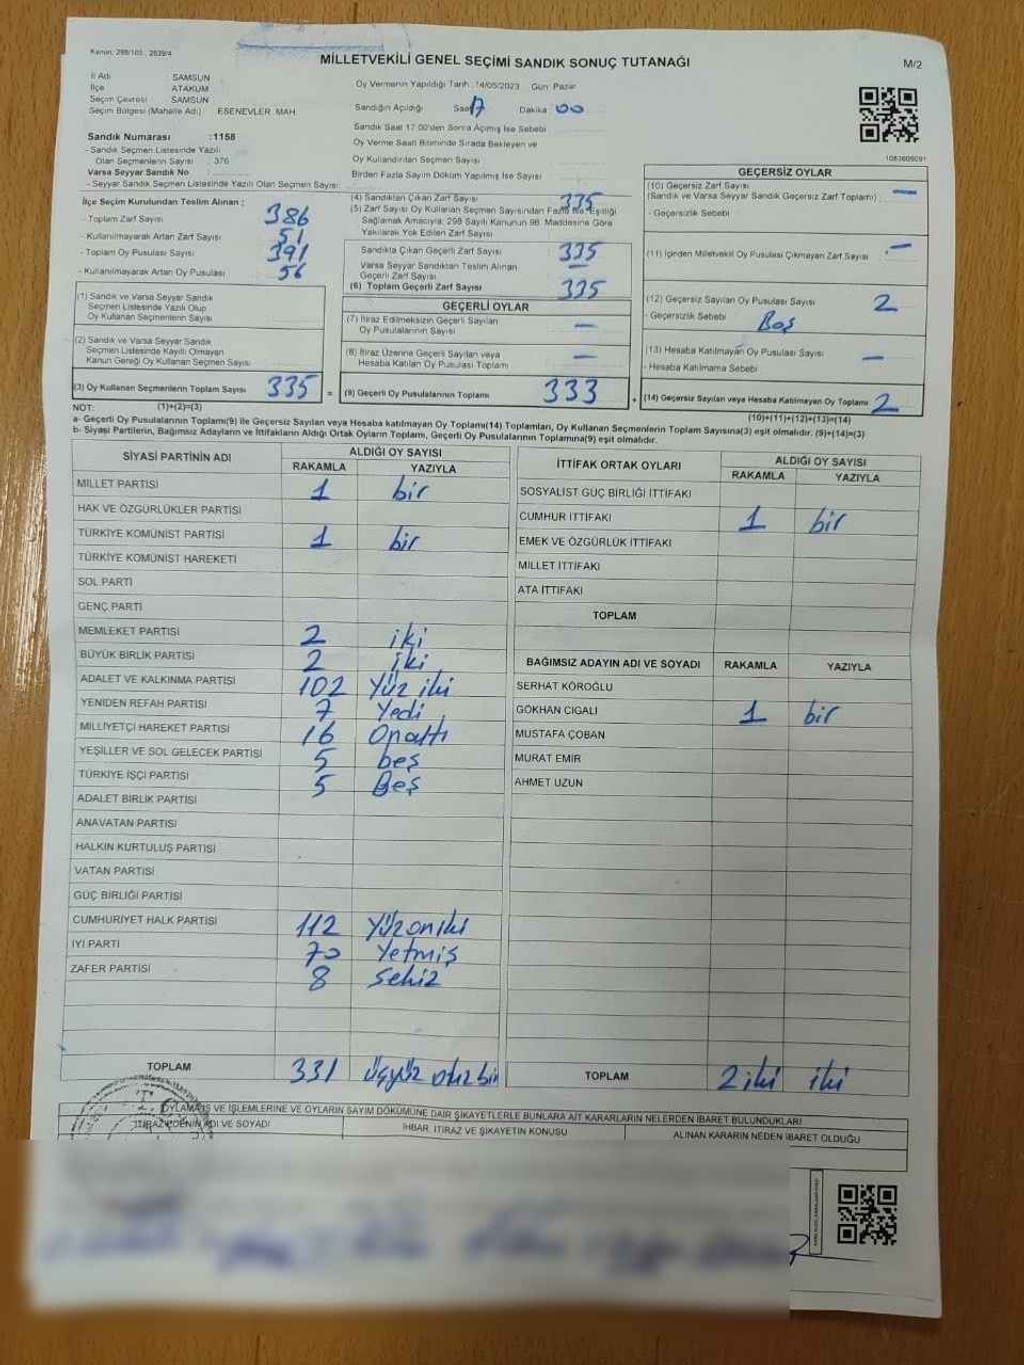 Kanun: 298/105 , 2839/4
MİLLETVEKİLİ GENEL SEÇİMİ SANDIK SONUÇ TUTANAĞI
M/2
İl Adı SAMSUN
İlçe ATAKUM
Seçim Çevresi SAMSUN
Seçim Bölgesi (Mahalle Adı) : ESENEVLER MAH.
Sandık Numarası :1158
- Sandık Seçmen Listesinde Yazılı
Olan Seçmenlerin Sayısı : 376
Varsa Seyyar Sandık No
- Seyyar Sandık Seçmen Listesinde Yazılı Olan Seçmen Sayısı:
Oy Vermenin Yapıldığı Tarih : 14/05/2023 Gün: Pazar
Sandığın Açıldığı Saat 17 Dakika 00
Sandık Saat 17:00'den Sonra Açılmış İse Sebebi
Oy Verme Saati Bitiminde Sırada Bekleyen ve
Oy Kullandırılan Seçmen Sayısı
Birden Fazla Sayım Döküm Yapılmış İse Sayısı
İlçe Seçim Kurulundan Teslim Alınan :
- Toplam Zarf Sayısı 386
- Kullanılmayarak Artan Zarf Sayısı 51
- Toplam Oy Pusulası Sayısı 391
- Kullanılmayarak Artan Oy Pusulası 56
(1) Sandık ve Varsa Seyyar Sandık
Seçmen Listesinde Yazılı Olup
Oy Kullanan Seçmenlerin Sayısı
(2) Sandık ve Varsa Seyyar Sandık
Seçmen Listesinde Kayıtlı Olmayan
Kanun Gereği Oy Kullanan Seçmen Sayısı
(3) Oy Kullanan Seçmenlerin Toplam Sayısı 335 =
(1)+(2)=(3)
(4) Sandıktan Çıkan Zarf Sayısı 335
(5) Zarf Sayısı Oy Kullanan Seçmen Sayısından Fazla ise, Eşitliği
Sağlamak Amacıyla, 298 Sayılı Kanunun 98. Maddesine Göre
Yakılarak Yok Edilen Zarf Sayısı
Sandıkta Çıkan Geçerli Zarf Sayısı 335
Varsa Seyyar Sandıktan Teslim Alınan
Geçerli Zarf Sayısı —
(6) Toplam Geçerli Zarf Sayısı 335
GEÇERLİ OYLAR
(7) İtiraz Edilmeksizin Geçerli Sayılan
Oy Pusulalarının Sayısı —
(8) İtiraz Üzerine Geçerli Sayılan veya
Hesaba Katılan Oy Pusulaları Toplamı —
(9) Geçerli Oy Pusulalarının Toplamı 333 +
1083609091
GEÇERSİZ OYLAR
(10) Geçersiz Zarf Sayısı
(Sandık ve Varsa Seyyar Sandık Geçersiz Zarf Toplamı) —
- Geçersizlik Sebebi
(11) İçinden Milletvekili Oy Pusulası Çıkmayan Zarf Sayısı —
(12) Geçersiz Sayılan Oy Pusulası Sayısı 2
- Geçersizlik Sebebi Boş
(13) Hesaba Katılmayan Oy Pusulası Sayısı —
- Hesaba Katılmama Sebebi
(14) Geçersiz Sayılan veya Hesaba Katılmayan Oy Toplamı 2
(10)+(11)+(12)+(13)=(14)
NOT:
a- Geçerli Oy Pusulalarının Toplamı(9) ile Geçersiz Sayılan veya Hesaba katılmayan Oy Toplamı(14) Toplamları, Oy Kullanan Seçmenlerin Toplam Sayısına(3) eşit olmalıdır. (9)+(14)=(3)
b- Siyasi Partilerin, Bağımsız Adayların ve İttifakların Aldığı Ortak Oyların Toplamı, Geçerli Oy Pusulalarının Toplamına(9) eşit olmalıdır.
SİYASİ PARTİNİN ADI ALDIĞI OY SAYISI
RAKAMLA YAZIYLA
MİLLET PARTİSİ 1 bir
HAK VE ÖZGÜRLÜKLER PARTİSİ
TÜRKİYE KOMÜNİST PARTİSİ 1 bir
TÜRKİYE KOMÜNİST HAREKETİ
SOL PARTİ
GENÇ PARTİ
MEMLEKET PARTİSİ 2 iki
BÜYÜK BİRLİK PARTİSİ 2 iki
ADALET VE KALKINMA PARTİSİ 102 Yüz iki
YENİDEN REFAH PARTİSİ 7 Yedi
MİLLİYETÇİ HAREKET PARTİSİ 16 Onaltı
YEŞİLLER VE SOL GELECEK PARTİSİ 5 beş
TÜRKİYE İŞÇİ PARTİSİ 5 Beş
ADALET BİRLİK PARTİSİ
ANAVATAN PARTİSİ
HALKIN KURTULUŞ PARTİSİ
VATAN PARTİSİ
GÜÇ BİRLİĞİ PARTİSİ
CUMHURİYET HALK PARTİSİ 112 Yüzoniki
İYİ PARTİ 70 Yetmiş
ZAFER PARTİSİ 8 Sekiz
TOPLAM 331 üçyüz otuz bir
İTTİFAK ORTAK OYLARI ALDIĞI OY SAYISI
RAKAMLA YAZIYLA
SOSYALİST GÜÇ BİRLİĞİ İTTİFAKI
CUMHUR İTTİFAKI 1 bir
EMEK VE ÖZGÜRLÜK İTTİFAKI
MİLLET İTTİFAKI
ATA İTTİFAKI
TOPLAM
BAĞIMSIZ ADAYIN ADI VE SOYADI RAKAMLA YAZIYLA
SERHAT KÖROĞLU
GÖKHAN CIGALI 1 bir
MUSTAFA ÇOBAN
MURAT EMİR
AHMET UZUN
TOPLAM 2 iki iki
OYLAMA İŞ VE İŞLEMLERİNE VE OYLARIN SAYIM DÖKÜMÜNE DAİR ŞİKAYETLERLE BUNLARA AİT KARARLARIN NELERDEN İBARET BULUNDUKLARI
İTİRAZ EDENİN ADI VE SOYADI İHBAR, İTİRAZ VE ŞİKAYETİN KONUSU ALINAN KARARIN NEDEN İBARET OLDUĞU